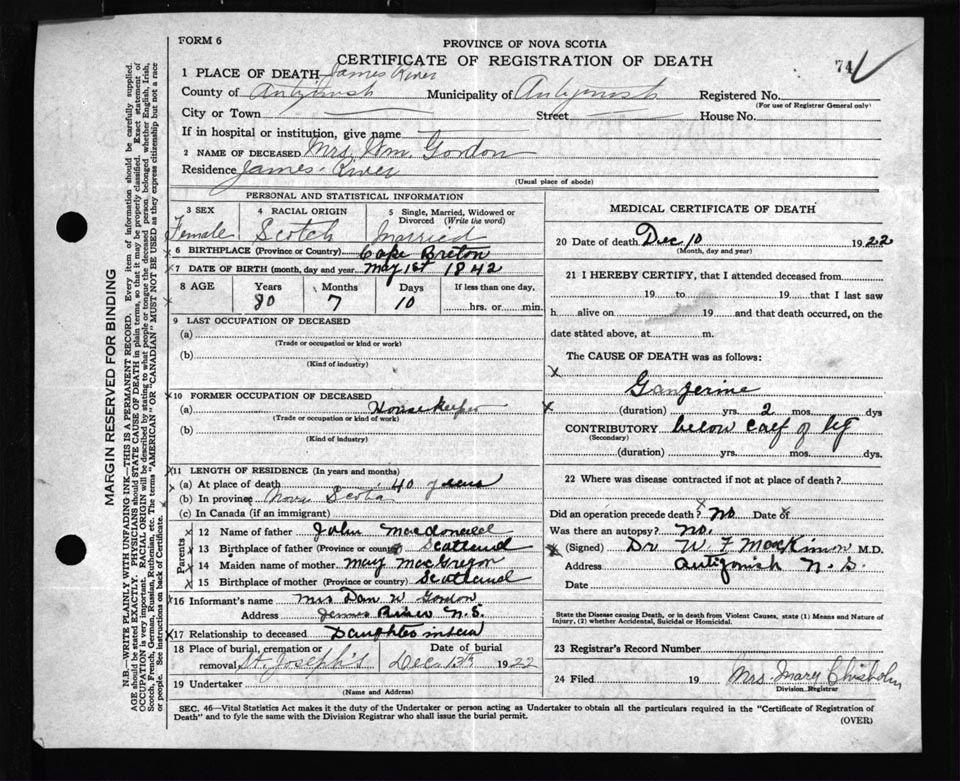 FORM 6
PROVINCE OF NOVA SCOTIA
CERTIFICATE OF REGISTRATION OF DEATH
74
1 PLACE OF DEATH James River
County of Antigonish Municipality of Antigonish Registered No.
(For use of Registrar General only)
City or Town Street House No.
If in hospital or institution, give name
2 NAME OF DECEASED Mrs. Wm. Gordon
Residence James River
(Usual place of abode)
PERSONAL AND STATISTICAL INFORMATION
3 SEX 4 RACIAL ORIGIN 5 Single, Married, Widowed or Divorced (Write the word)
Female Scotch Married
6 BIRTHPLACE (Province or Country) Cape Breton
7 DATE OF BIRTH (month, day and year) May 1st 1842
8 AGE Years Months Days If less than one day,
80 7 10 hrs. or min.
9 LAST OCCUPATION OF DECEASED
(a)
(Trade or occupation or kind or work)
(b)
(Kind of industry)
10 FORMER OCCUPATION OF DECEASED
(a) House Keeper
(Trade or occupation or kind of work)
(b)
(Kind of industry)
11 LENGTH OF RESIDENCE (In years and months)
(a) At place of death 40 years
(b) In province Nova Scotia
(c) In Canada (if an immigrant)
Parents
12 Name of father John Macdonald
13 Birthplace of father (Province or country) Scotland
14 Maiden name of mother Mary MacGregor
15 Birthplace of mother (Province or country) Scotland
16 Informant's name Mrs Dan W Gordon
Address James River N.S.
17 Relationship to deceased Daughter inlaw
18 Place of burial, cremation or removal St. Joseph's Date of burial Dec. 13th 1922
19 Undertaker
(Name and Address)
MEDICAL CERTIFICATE OF DEATH
20 Date of death Dec 10 1922
(Month, day and year)
21 I HEREBY CERTIFY, that I attended deceased from
19 to 19 that I last saw
h alive on 19 and that death occurred, on the
date stated above, at m.
The CAUSE OF DEATH was as follows:
Gangerine
(duration) yrs. 2 mos. dys
CONTRIBUTORY below calf of leg
(Secondary)
(duration) yrs. mos. dys.
22 Where was disease contracted if not at place of death?
Did an operation precede death? No Date of
Was there an autopsy? No.
(Signed) Dr W F MacKinnon M.D.
Address Antigonish N.S.
Date
State the Disease causing Death, or in death from Violent Causes, state (1) Means and Nature of Injury, (2) whether Accidental, Suicidal or Homicidal.
23 Registrar's Record Number
24 Filed 19 Mrs. Mary Chisholm
Division Registrar
SEC. 46—Vital Statistics Act makes it the duty of the Undertaker or person acting as Undertaker to obtain all the particulars required in the "Certificate of Registration of
Death" and to fyle the same with the Division Registrar who shall issue the burial permit. (OVER)
MARGIN RESERVED FOR BINDING
N.B.—WRITE PLAINLY WITH UNFADING INK—THIS IS A PERMANENT RECORD. Every item of information should be carefully supplied.
AGE should be stated EXACTLY. PHYSICIANS should STATE CAUSE OF DEATH in plain terms, so that it may be properly classified. Exact statement of
OCCUPATION is very important. RACIAL ORIGIN will be described by stating to what people or tongue the deceased person belonged whether English, Irish,
Scotch, French, German, Russian, Ruthenian, etc. The terms "AMERICAN" OR "CANADIAN" MUST NOT BE USED as they express citizenship but not a race
or people. See instructions on back of Certificate.